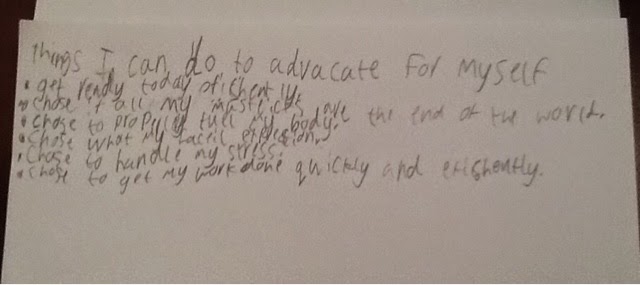 Things I can do to advacate for myself
• get ready today efishently.
• chose if all my mastickes are the end of the world.
• chose to properly full my body.
• chose what my facil expression.
• chose to handle my stress.
• chose to get my work done quickly and efishently.